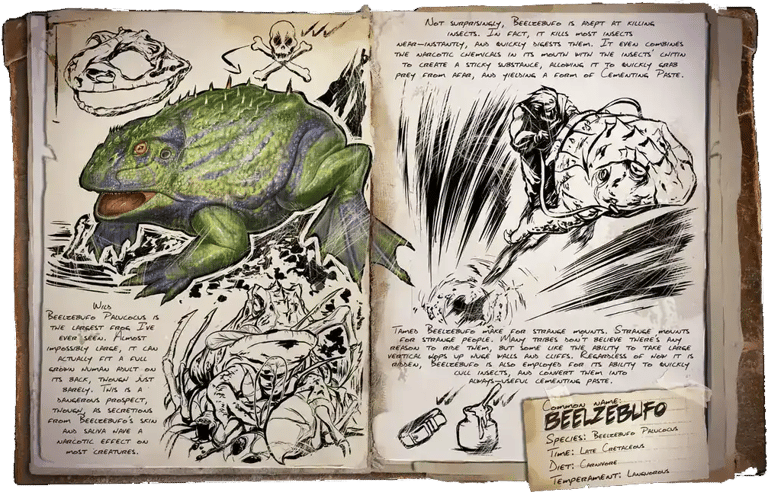 Wild
Beelzebufo Palucocus is
the largest frog I've
ever seen. Almost
impossibly large, it can
actually fit a full
grown human adult on
its back, though just
barely. This is a
dangerous prospect,
though, as secretions
from Beelzebufo's skin
and saliva have a
narcotic effect on
most creatures.
Not surprisingly, Beelzebufo is adept at killing
insects. In fact, it kills most insects
near-instantly, and quickly digests them. It even combines
the narcotic chemicals in its mouth with the insects' chitin
to create a sticky substance, allowing it to quickly grab
prey from afar, and yielding a form of Cementing Paste.
Tamed Beelzebufo make for strange mounts. Strange mounts
for strange people. Many tribes don't believe there's any
reason to ride them, but some like the ability to take large
vertical hops up huge walls and cliffs. Regardless of how it is
ridden, Beelzebufo is also employed for its ability to quickly
cull insects, and convert them into
always-useful cementing paste.
Common name:
Beelzebufo
Species: Beelzebufo Palucocus
Time: Late Cretaceous
Diet: Carnivore
Temperament: Languorous